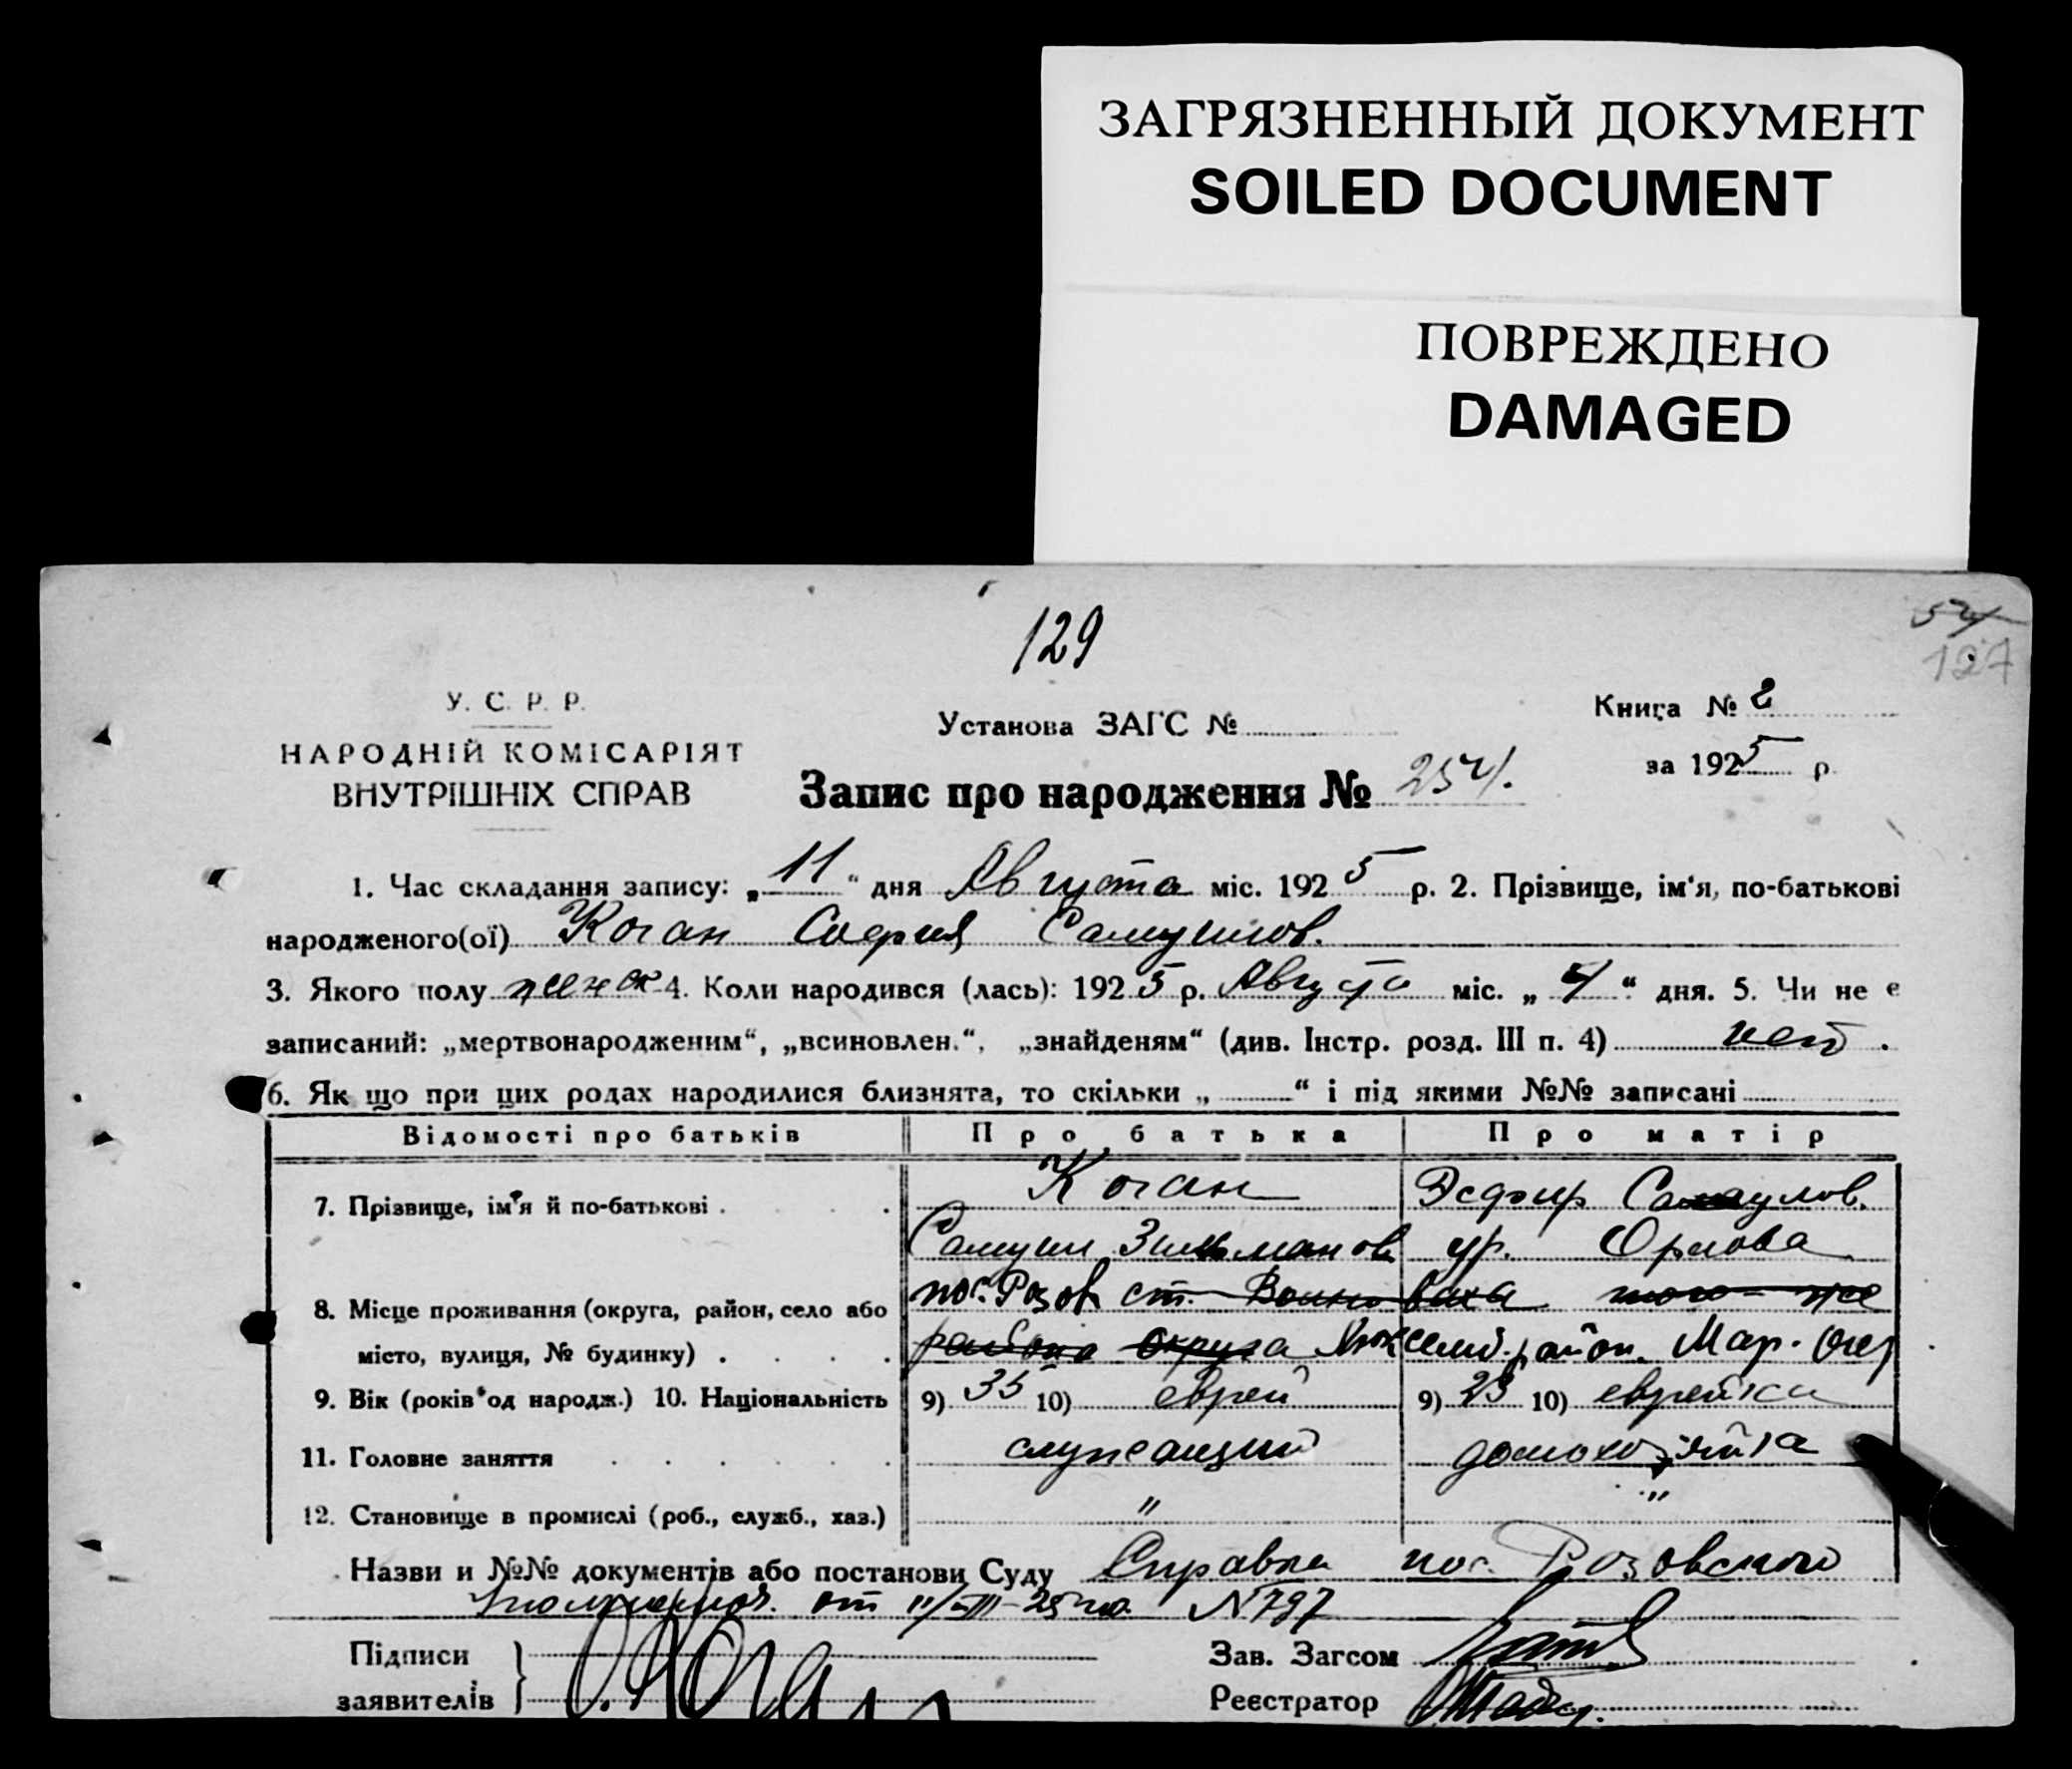 ЗАГРЯЗНЕННЫЙ ДОКУМЕНТ
SOILED DOCUMENT
ПОВРЕЖДЕНО
DAMAGED
54
127
129
У. С. Р. Р.
НАРОДНІЙ КОМІСАРІЯТ
ВНУТРІШНІХ СПРАВ
Установа ЗАГС №
Книга № 2
за 1925 р.
Запис про народження № 254.
1. Час складання запису: „11“ дня Августа міс. 1925 р. 2. Прізвище, ім'я, по-батькові
народженого(ої) Коган София Самуилов.
3. Якого полу женск 4. Коли народився (лась): 1925 р. Августа міс. „4“ дня. 5. Чи не є
записаний: „мертвонародженим“, „всиновлен.“, „знайденям“ (див. Інстр. розд. III п. 4) нет.
6. Як що при цих родах народилися близнята, то скільки „ “ і під якими №№ записані
Відомості про батьків Про батька Про матір
7. Прізвище, ім'я й по-батькові . . . Коган Эсфир Самуилов.
Самуил Зильманов ур. Орлова
8. Місце проживання (округа, район, село або пос. Розов ст. Волноваха того-же
місто, вулиця, № будинку) . . . . района округа район. Мар. Окр
9. Вік (років од народж.) 10. Національність 9) 35 10) еврей 9) 23 10) еврейка
11. Головне заняття . . . . . . служащий домохозяйка
12. Становище в промислі (роб., служб., хаз.) " "
Назви и №№ документів або постанови Суду Справка пос. Розовского
от 11/VIII-25 го. N 797
Підписи
заявителів
Зав. Загсом
Реєстратор